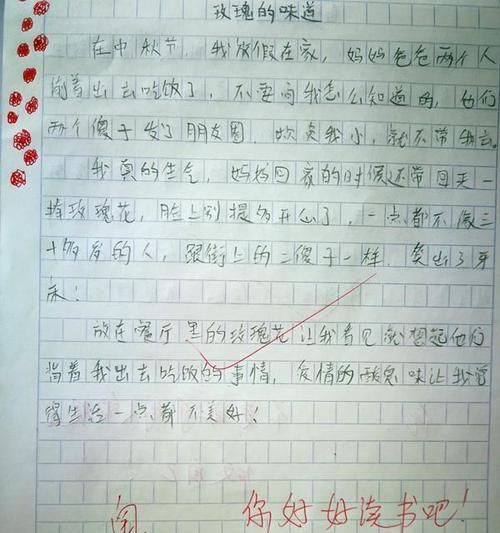 玫瑰的味道
在中秋节，我放假在家，妈妈爸爸两个人
背着出去吃饭了，不要问我怎么知道的，他们
两个傻子发了朋友圈，欺负我小，就不带我去。
我真的生气，妈妈回家的时候还带回来一
捧玫瑰花，脸上别提多开心了，一点都不像三
十多岁的人，跟街上的二傻子一样，笑出了牙
床！
放在餐厅里的玫瑰花让我看见就想起他们
背着我出去吃饭的事情，爱情的酸臭味让我觉
得生活一点都不美好！
阅
你好好读书吧！